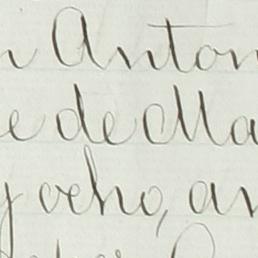 n Anton
e de Ma
y ocho, an